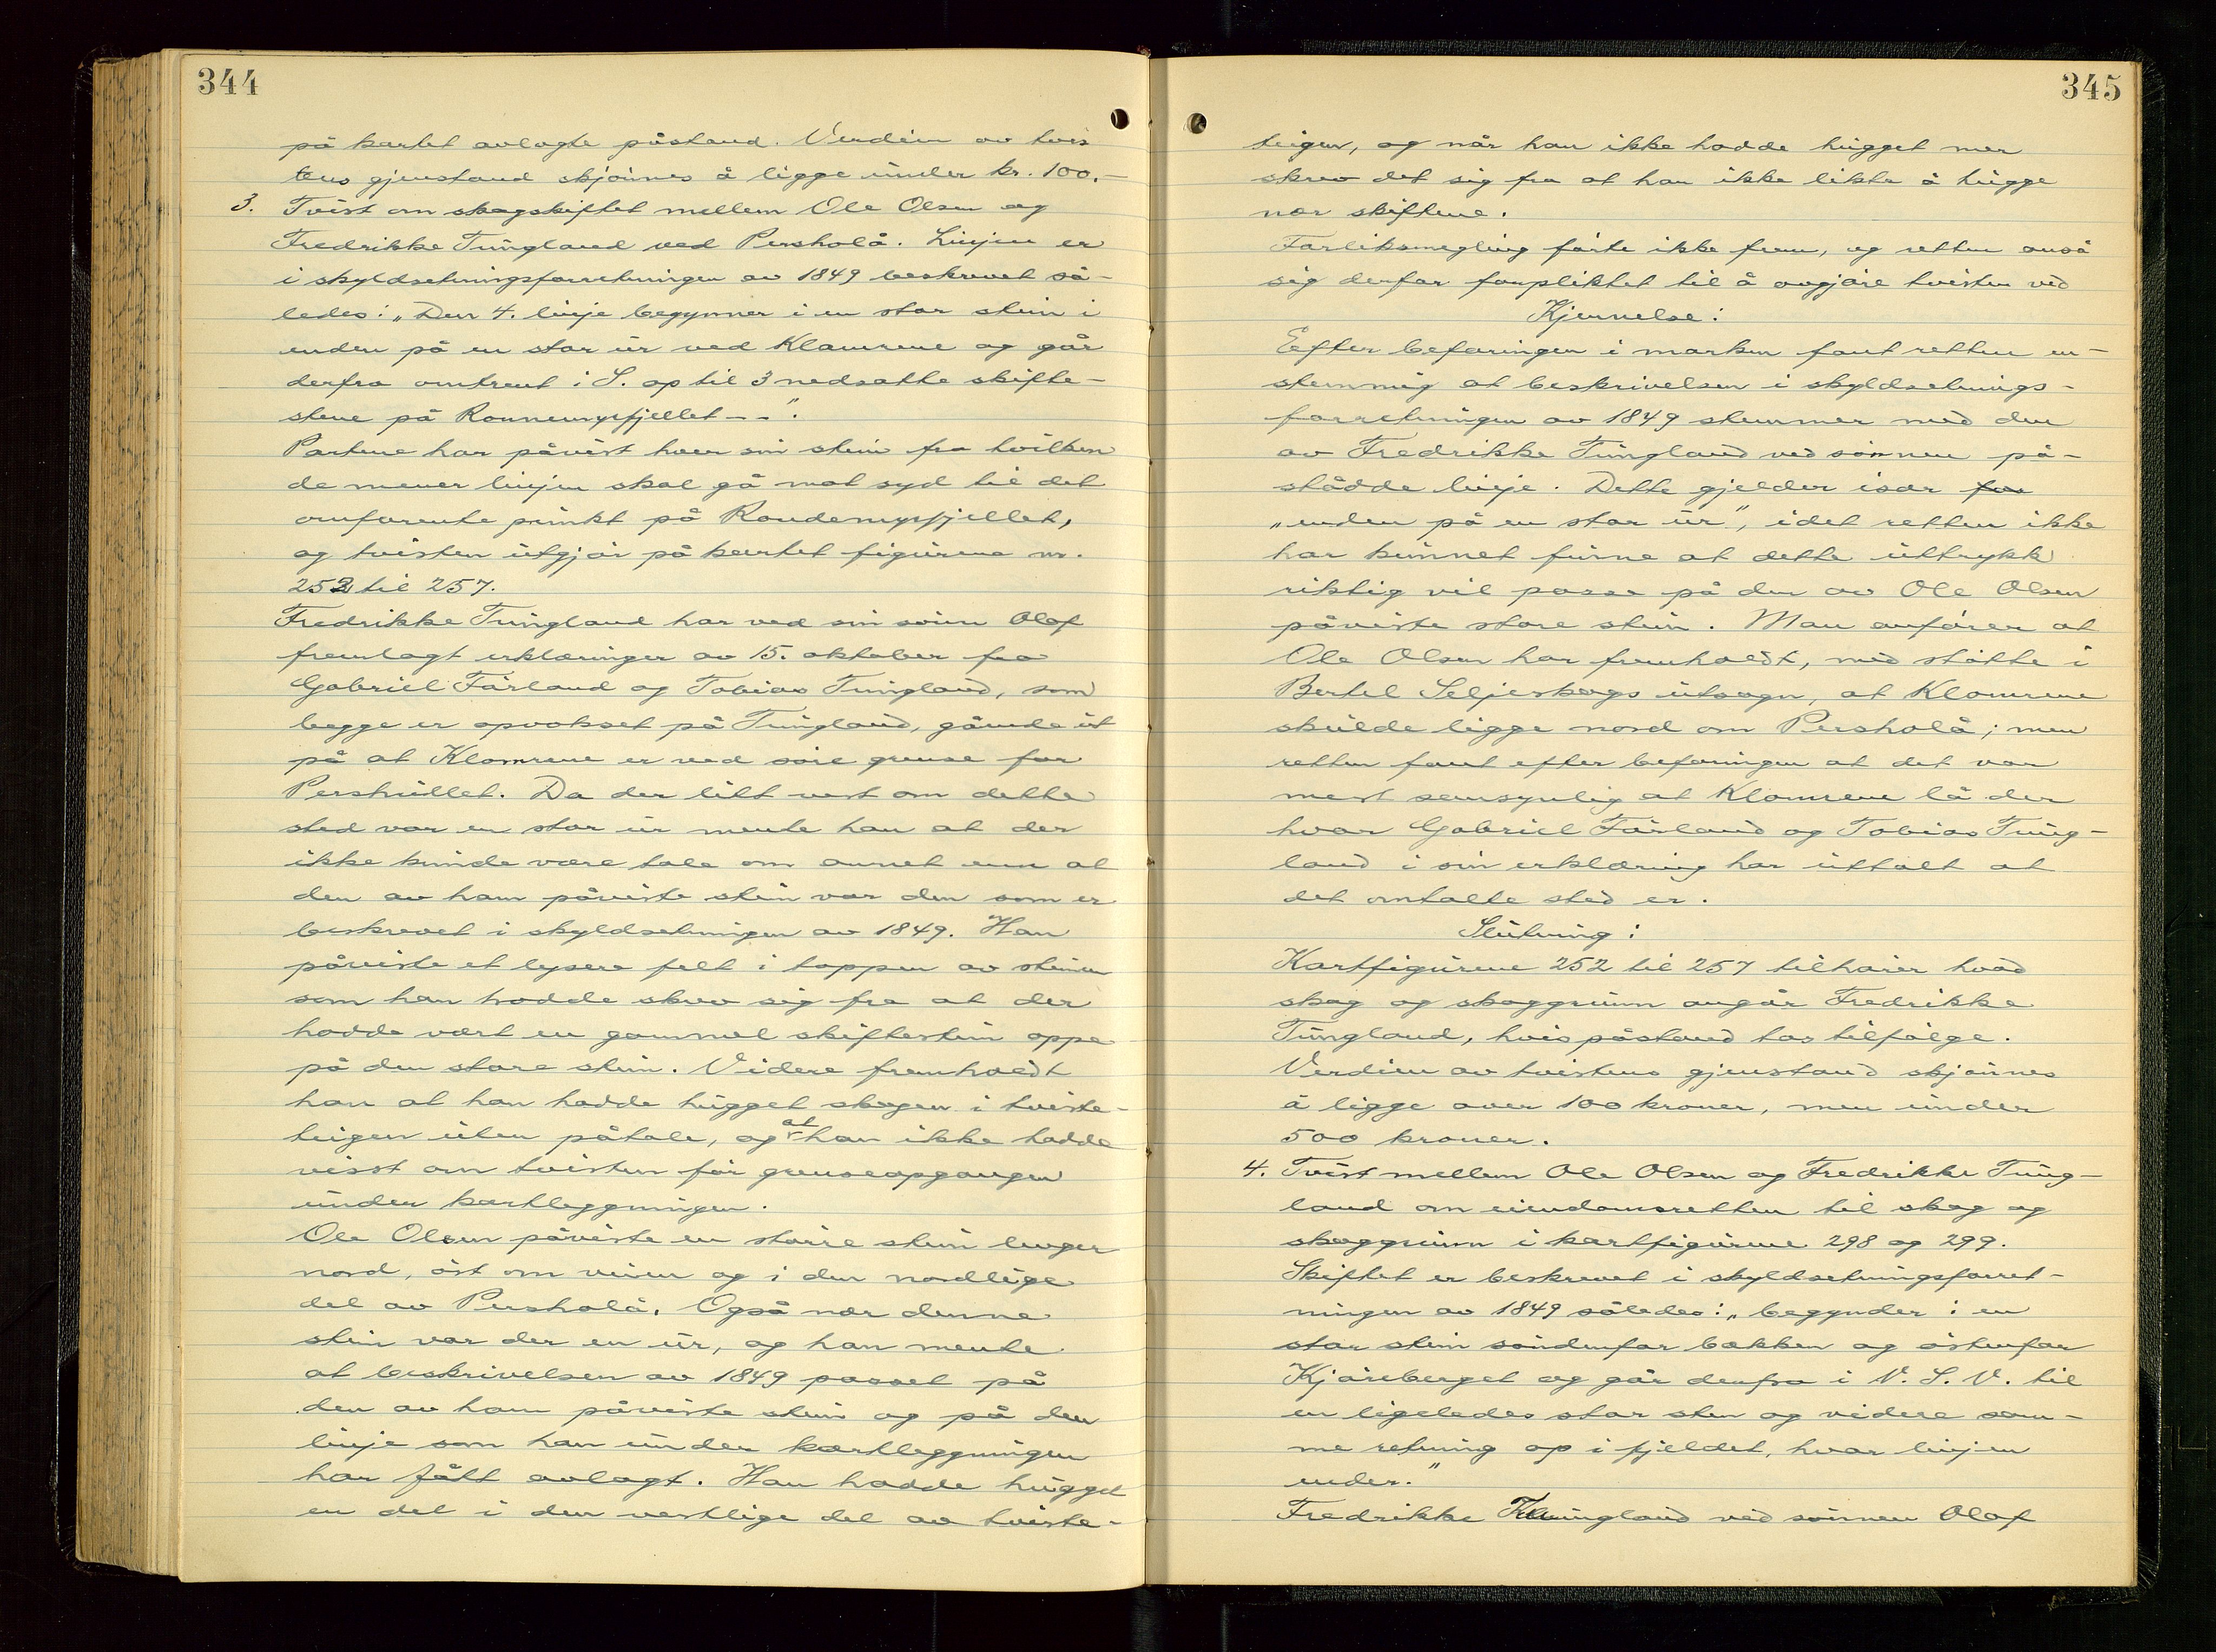 344
på kartet avlagte påstand. Verdien av tvis
tens gjenstand skjønnes å ligge under kr. 100.-
3. Tvist om skogskiftet mellem Ole Olsen og
Fredrikke Tungland ved Persholå. Linjen er
i skyldsetningsforretningen av 1849 beskrevet så-
ledes: "Den 4. linje begynner i en stor stein i
enden på en stor ur ved Klamrene og går
derfra omtrent i S. op til 3 nedsatte skifte-
stene på Ronnemyrfjellet--".
Partene har påvist hver sin stein fra hvilken
de mener linjen skal gå mot syd til det
omforente punkt på Rondemyrfjellet,
og tvisten utgjør på kartet figurene nr.
252 til 257.
Fredrikke Tungland har ved sin sønn Olaf
fremlagt erklæringer av 15. oktober fra
Gabriel Fårland og Tobias Tungland, som
begge er opvokset på Tungland, gående ut
på at Klomrene er ved søre grense for
Pershullet. Da der litt vest om dette
sted var en stor ur mente han at der
ikke kunde være tale om annet enn at
den av ham påviste stein var den som er
beskrevet i skyldsetningen av 1849. Han
påviste et lysere felt i toppen av steinen
som han hadde skrev sig fra at der
hadde vært en gammel skiftestein oppe
på den store stein. Videre fremholdt
han at han hadde hugget skogen i tviste-
teigen uten påtale, og at han ikke hadde
visst om tvisten før grenseopgangen
under kartleggningen.
Ole Olsen påviste en større stein lenger
nord, øst om veien og i den nordlige
del av Persholå. Også nær denne
stein var der en ur, og han mente
at beskrivelsen av 1849 passet på
den av ham påviste stein og på den
linje som han under kartleggningen
har fått avlagt. Han hadde hugget
en del i den vestlige del av tviste-
345
teigen, og når han ikke hadde hugget mer
skrev det sig fra at han ikke likte å hugge
nær skiftene.
Forliksmegling førte ikke frem, og retten anså
sig derfor forpliktet til å avgjøre tvisten ved
Kjennelse:
Eefter befaringen i marken fant retten en-
stemmig at beskrivelsen i skyldsetnings-
forretningen av 1849 stemmer med den
av Fredrikke Tungland ved sønnen på-
stådde linje. Dette gjelder især for
"enden på en stor ur", idet retten ikke
har kunnet finne at dette uttrykk
riktig vil passe på den av Ole Olsen
påviste store stein. Man anfører at
Ole Olsen har fremholdt, med støtte i
Bertel Seljeskogs utsagn, at Klomrene
skulde ligge nord om Persholå; men
retten fant efter befaringen at det var
mest sansynlig at Klomrene lå der
hvor Gabriel Fårland og Tobias Tung-
land i sin erklæring har uttalt at
det omtalte sted er.
Slutning:
Kartfigurene 252 til 257 tilhører hvad
skog og skoggrunn angår Fredrikke
Tungland, hvis påstand tas tilfølge.
Verdien av tvistens gjenstand skjønnes
å ligge over 100 kroner, men under
500 kroner.
4. Tvist mellem Ole Olsen og Fredrikke Tung-
land om eiendomsretten til skog og
skoggrunn i kartfigurene 298 og 299.
Skiftet er beskrevet i skyldsetningsforret-
ningen av 1849 således: "begynder i en
stor stein søndenfor bekken og østenfor
Kjøreberget og går derfra i V. S. V. til
en ligeledes stor sten og videre sam-
me retning op i fjeldet, hvor linjen
ender."
Fredrikke Tungland ved sønnen Olaf